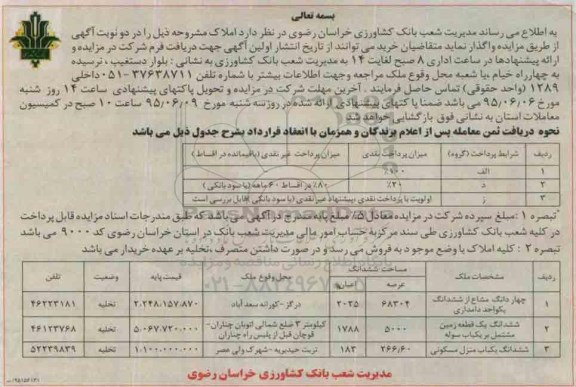 بسمه تعالی
به اطلاع می رساند مدیریت شعب بانک کشاورزی خراسان رضوی در نظر دارد املاک مشروحه ذیل را در دو نوبت آگهی
از طریق مزایده واگذار نماید متقاضیان خرید می توانند از تاریخ انتشار اولین آگهی جهت دریافت فرم شرکت در مزایده و
ارائه پیشنهادها در ساعات اداری ۸ صبح لغایت ۱۴ به مدیریت شعب بانک کشاورزی به نشانی : بلوار دستغیب ، نرسیده
به چهارراه خیام ،یا شعبه محل وقوع ملک مراجعه وجهت اطلاعات بیشتر با شماره تلفن ۳۷۶۳۸۷۱۱-۰۵۱ داخلی
۱۲۸۹ (واحد حقوقی) تماس حاصل فرمایند . آخرین مهلت شرکت در مزایده و تحویل پاکتهای پیشنهادی ساعت ۱۴ روز شنبه
مورخ ۹۵/۰۶/۰۶ می باشد ضمنا پاکتهای پیشنهادی ارائه شده در روز سه شنبه مورخ ۹۵/۰۶/۰۹ ساعت ۱۰ صبح در کمیسیون
معاملات استان به نشانی فوق بازگشایی خواهد شد
نحوه دریافت ثمن معامله پس از اعلام برندگان و همزمان با انعقاد قرارداد بشرح جدول ذیل می باشد
ردیف شرایط پرداخت (گروه) میزان پرداخت نقدی میزان پرداخت غیر نقدی (باقیمانده در اقساط)
۱ الف ۱۰۰٪
۲ د ۲۰٪ ۸۰٪ در اقساط ۶۰ ماهه (با سود بانکی)
۳ ز اولویت با پرداخت نقدی ،پیشنهاد غیر نقدی (با سود بانکی) قابل بررسی است
تبصره ۱ :مبلغ سپرده شرکت در مزایده معادل ۵٪ مبلغ پایه مندرج در آگهی می باشد که طبق مندرجات اسناد مزایده قابل پرداخت
در کلیه شعب بانک کشاورزی طی سند مرکز به حساب امور مالی مدیریت شعب بانک در استان خراسان رضوی کد ۹۰۰۰ می باشد
تبصره ۲ : کلیه املاک با وضع موجود به فروش می رسد و در صورت داشتن متصرف ،تخلیه بر عهده خریدار می باشد
ردیف مشخصات ملک مساحت ششدانگ عرصه اعیان محل وقوع ملک قیمت پایه وضعیت تلفن
۱ چهار دانگ مشاع از ششدانگ یکواحد دامداری ۶۸۳۰۴ ۲۰۳۵ درگز- سعد آباد ۲.۲۴۸.۱۵۷.۸۷۰ تخلیه ۴۶۲۲۳۱۸۱
۲ ششدانگ یک قطعه زمین مشتمل بر یکباب سوله ۵۰۰۰ ۱۷۸۸ کیلومتر ۳ ضلع شمالی اتوبان چناران- قوچان قبل از پلیس راه چناران ۵.۰۶۷.۷۲۰.۰۰۰ تخلیه ۴۶۱۲۳۷۶۸
۳ ششدانگ یکباب منزل مسکونی ۲۶۶/۶۰ ۱۸۳ تربت حیدریه-شهرک ولی عصر ۱.۱۰۰.۰۰۰.۰۰۰ تخلیه ۵۲۲۳۹۸۳۹
مدیریت شعب بانک کشاورزی خراسان رضوی